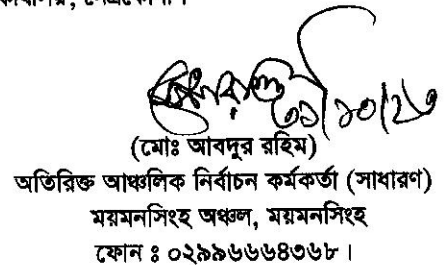 নেত্রকোণা
৩১/১০/২৩
(মোঃ আবদুর রহিম)
অতিরিক্ত আঞ্চলিক নির্বাচন কর্মকর্তা (সাধারণ)
ময়মনসিংহ অঞ্চল, ময়মনসিংহ
ফোন ঃ ০২৯৯৬৬৬৪৩৬৮।